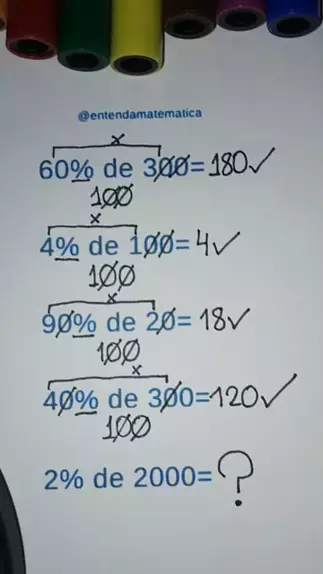 @entendamatematica
x
60% de 300=180✓
100
x
4% de 100=4✓
100
x
90% de 20=18✓
100
x
40% de 300=120✓
100
2% de 2000=?